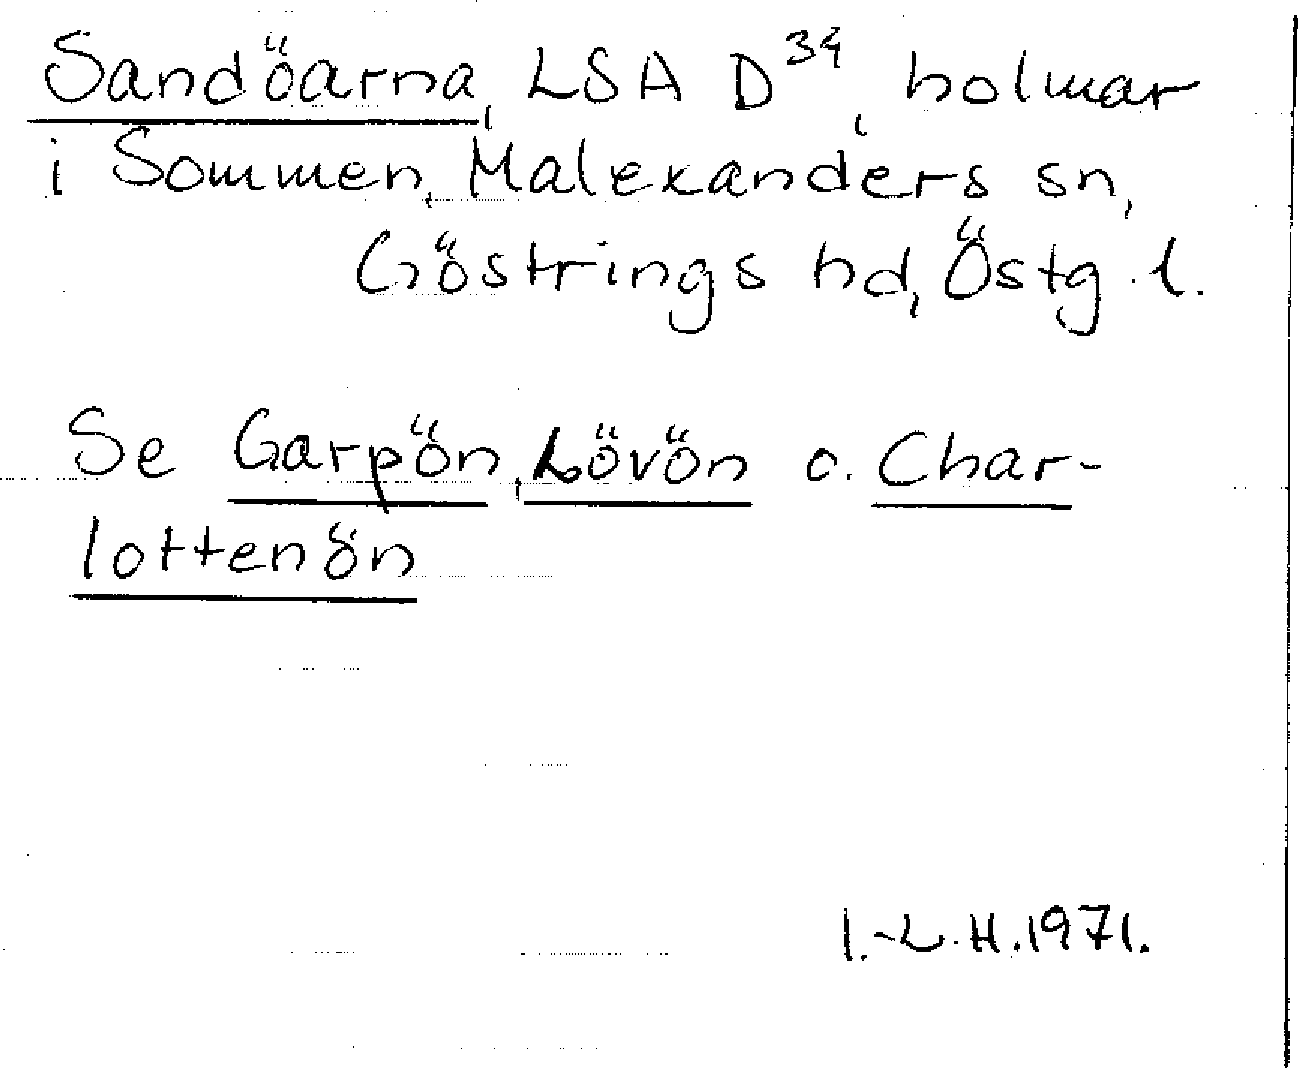 Sandöarna, LSA D³⁴, holmar
i Sommen, Malexanders sn,
Göstrings hd, Östg. l.
Se Garpön, Lövön o. Char-
lottenön
I.-L. H. 1971.